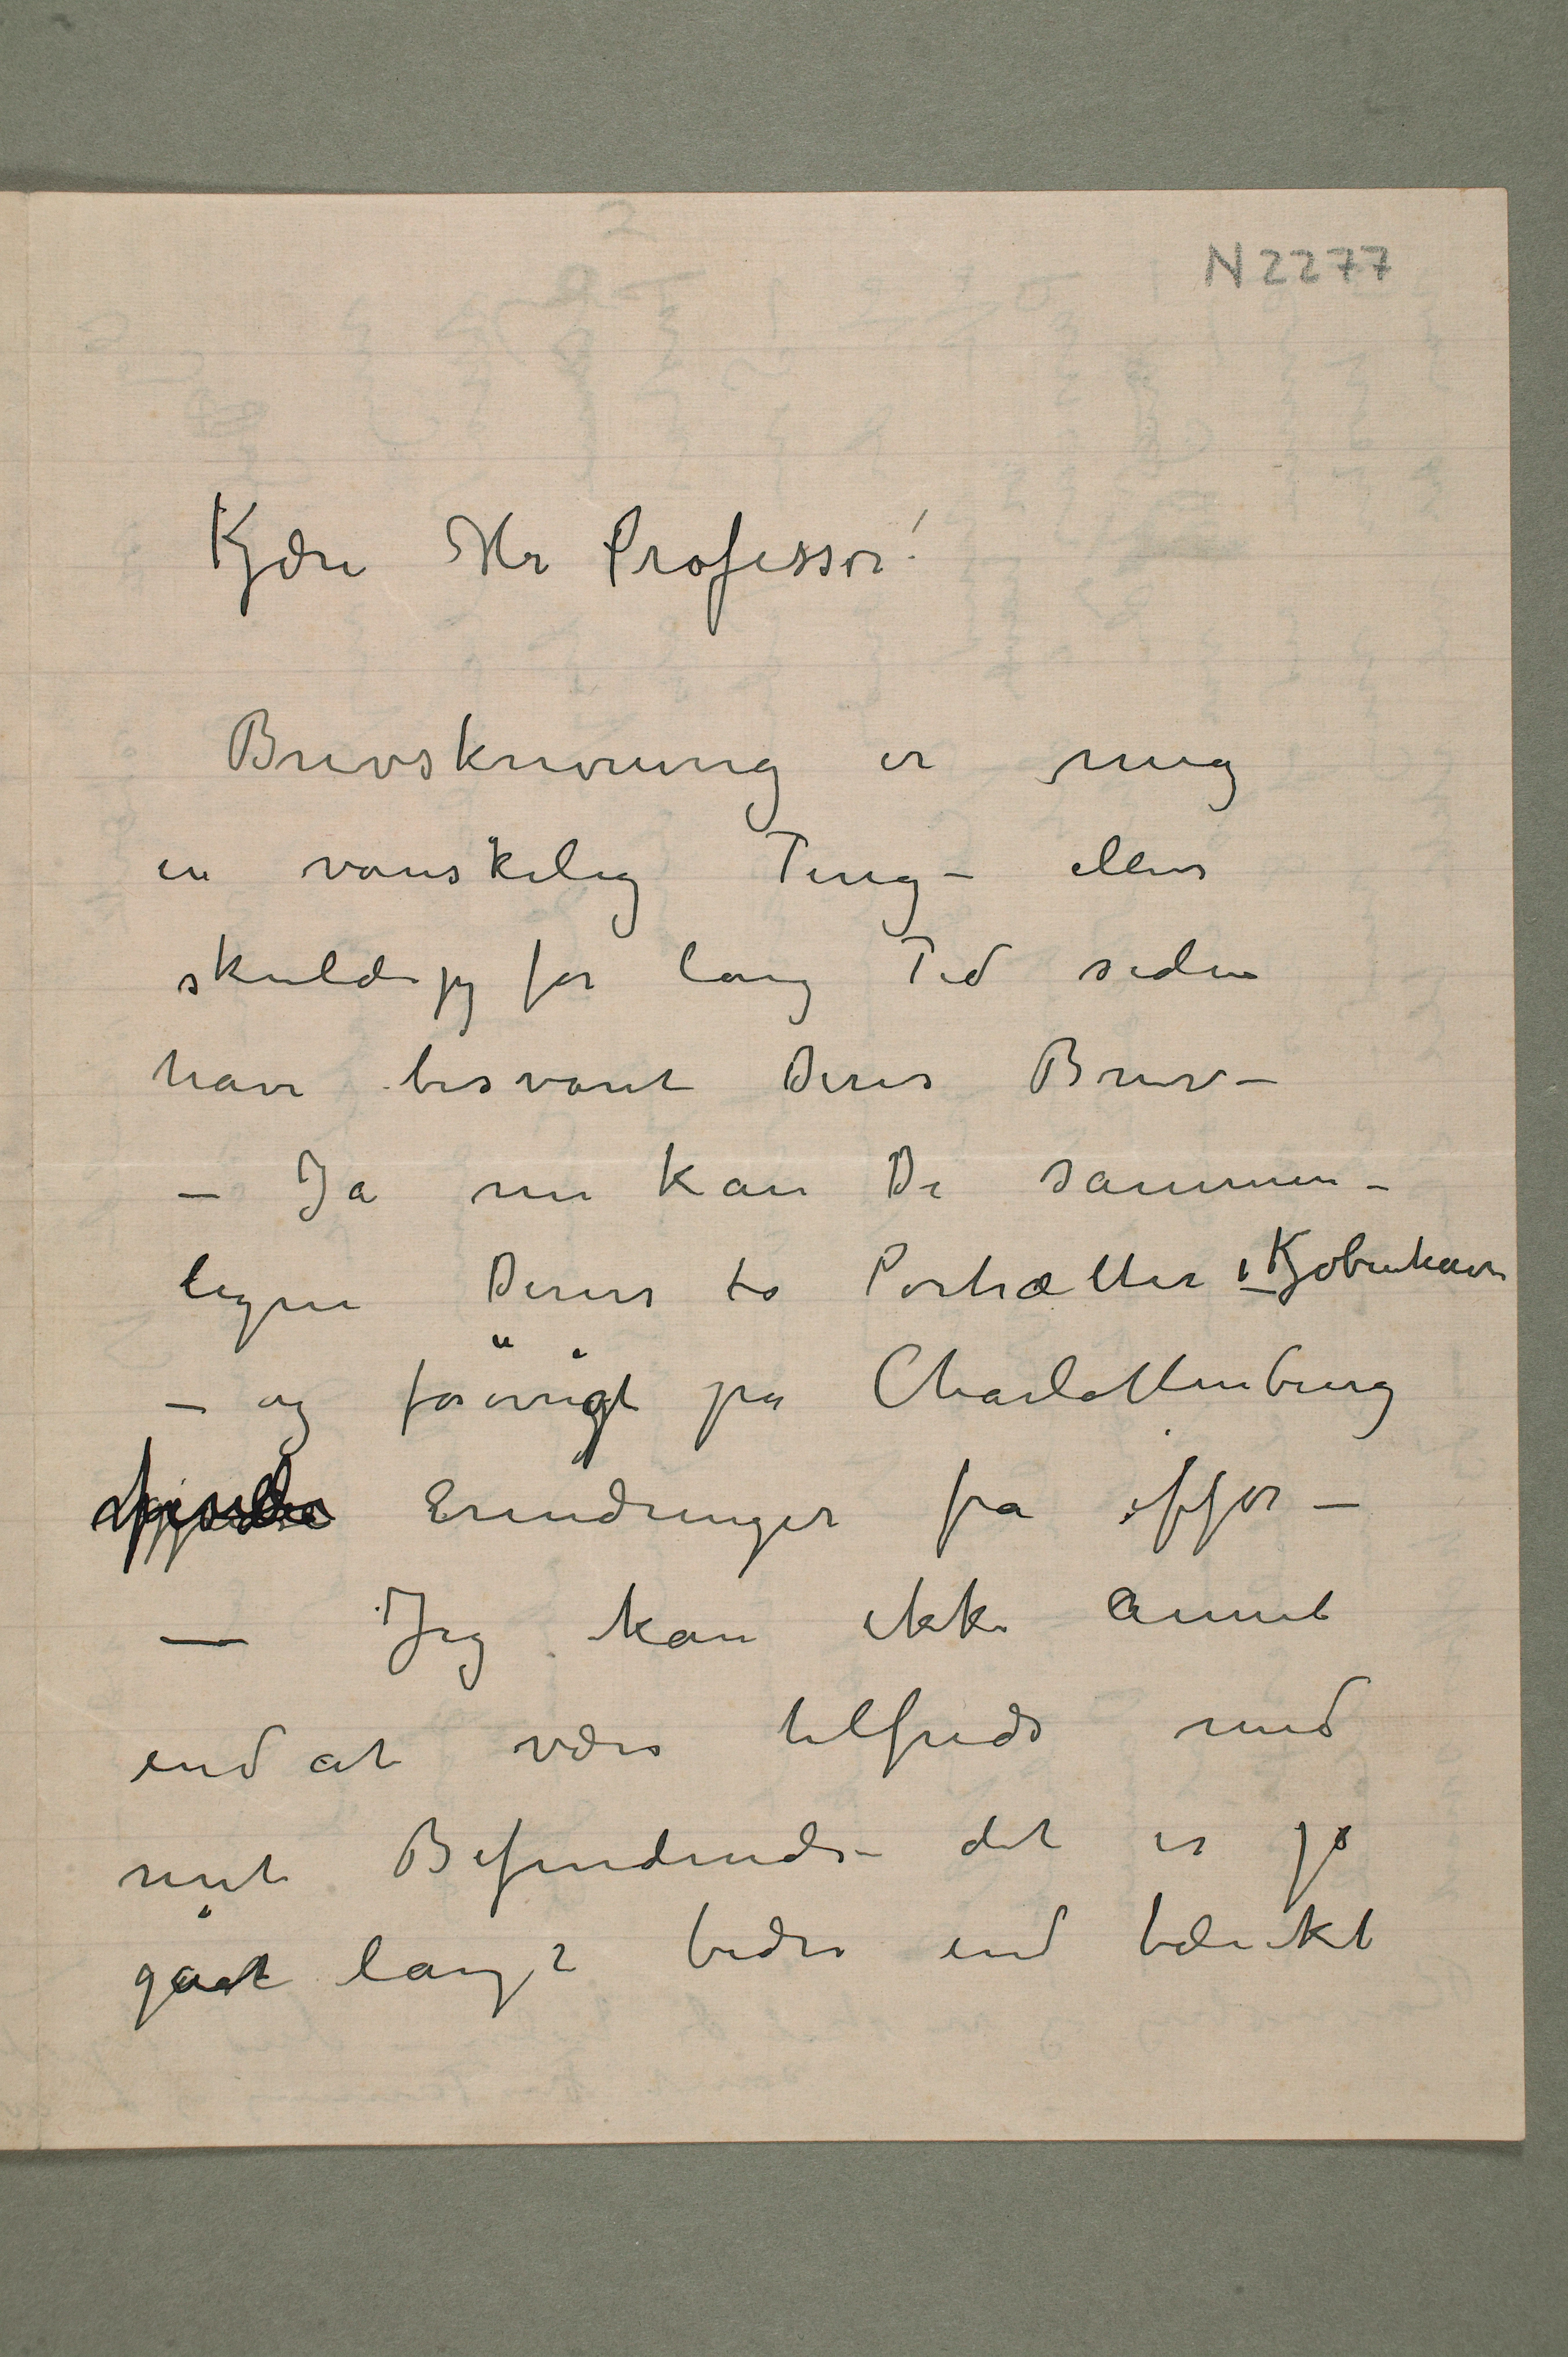 N 2277
Kjære Hr Professor!
Brevskrivning er mig
en vanskelig Ting – ellers
skulde jeg for lang Tid siden
have besvaret Deres Brev –
– Ja nu kan De sammen-
ligne Deres to Portrætter i Kjøbenhavn
– og forövrigt på Charlottenburg
Erindringer fra ifjor –
— Jeg kan ikke annet
end at være tilfreds med
mit Befindende det er jo
gået langt bedre end tænkt